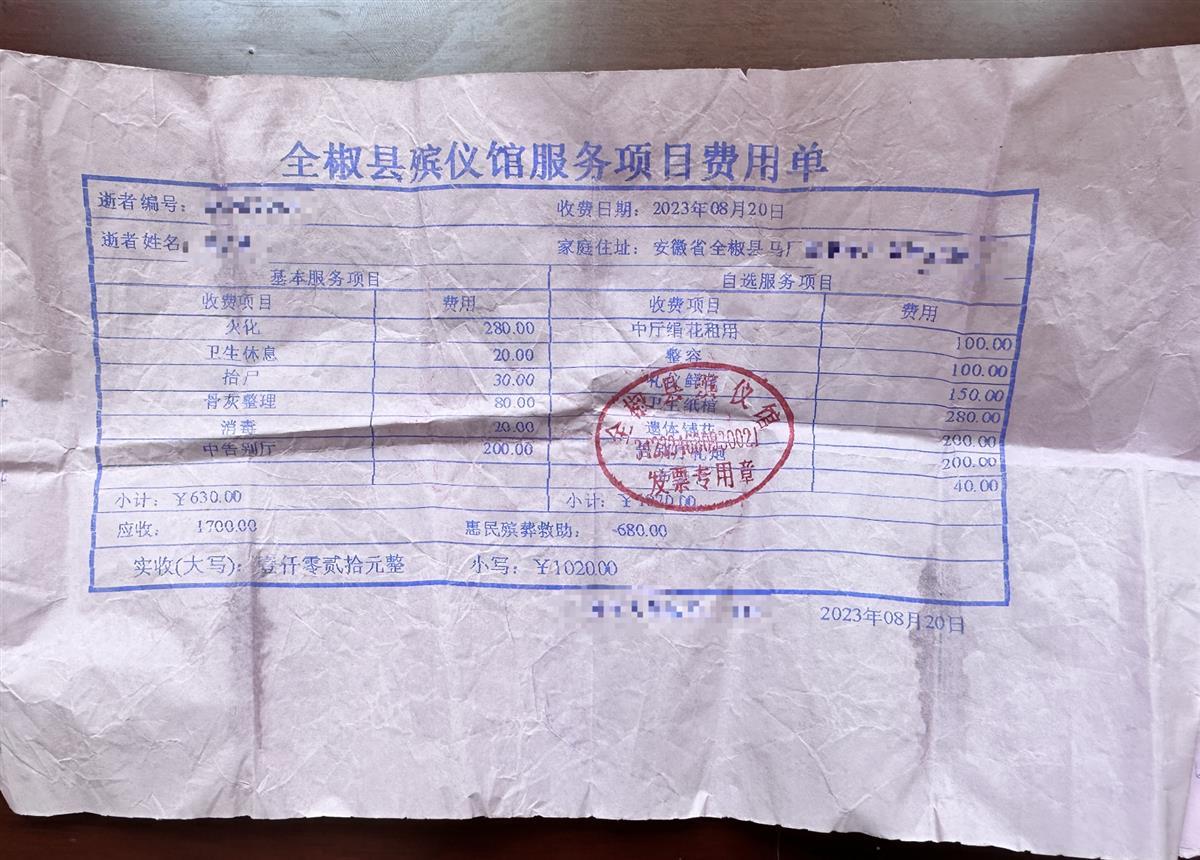 全椒县殡仪馆服务项目费用单
逝者编号:
收费日期: 2023年08月20日
逝者姓名
家庭住址: 安徽省全椒县马厂
基本服务项目 自选服务项目
收费项目 费用 收费项目 费用
火化 280.00 中厅绢花租用 100.00
卫生休息 20.00 整容 100.00
抬尸 30.00 礼仪鲜花 150.00
骨灰整理 80.00 卫生纸棺 280.00
消毒 20.00 遗体铺花 200.00
中告别厅 200.00 200.00
40.00
小计: ￥630.00 小计: ￥1070.00
应收: 1700.00 惠民殡葬救助: -680.00
实收(大写): 壹仟零贰拾元整 小写: ￥1020.00
2023年08月20日
全椒县殡仪馆
发票专用章